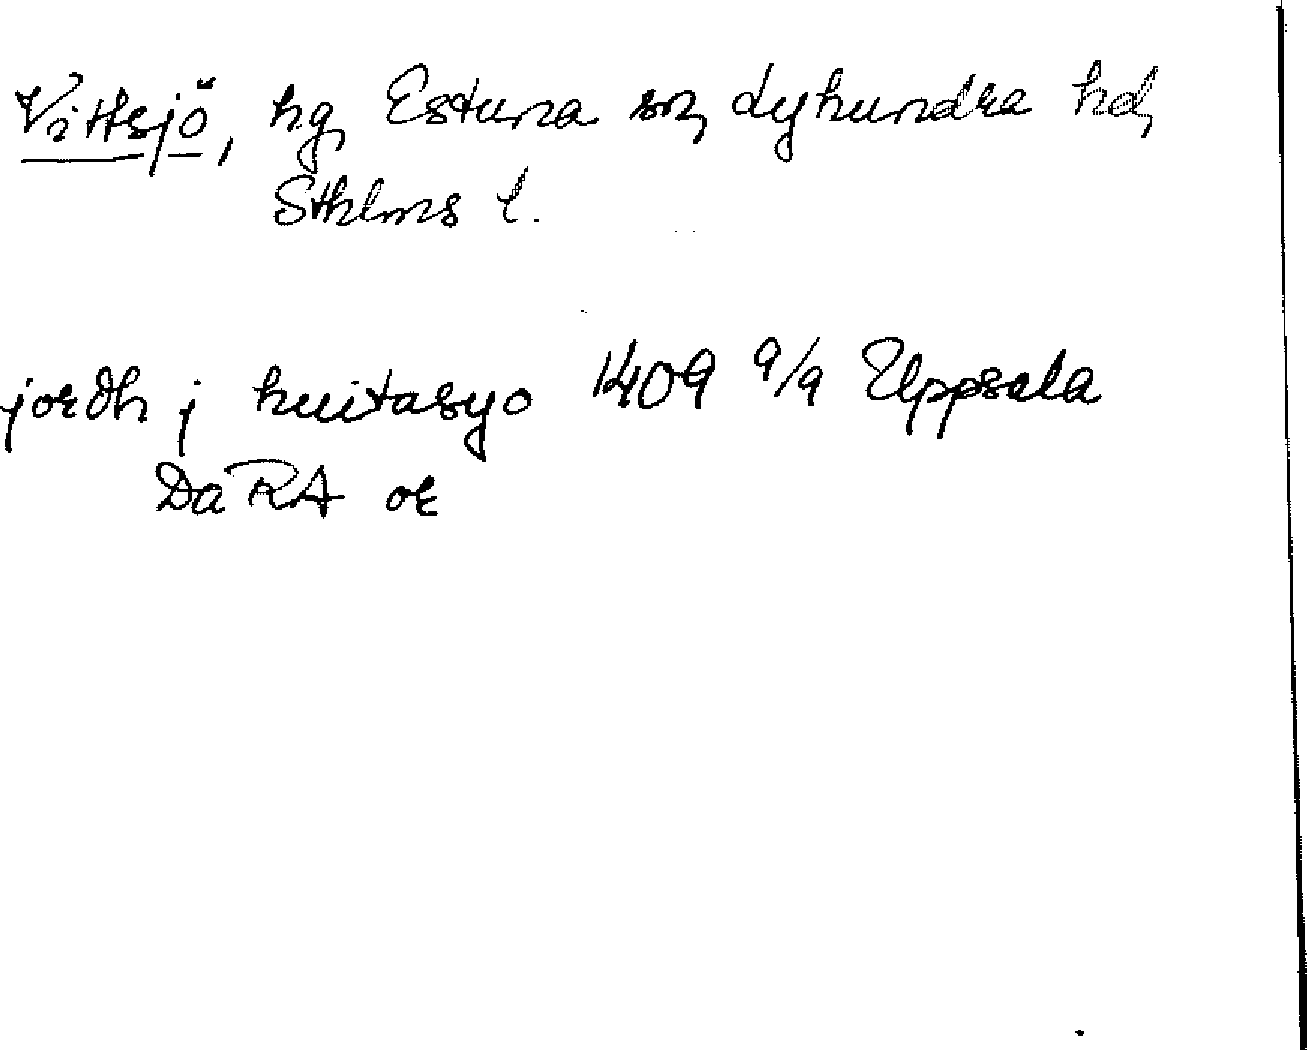 Vittsjö, hg, Estuna sn, Lyhundra hd,
Sthlms l.
jordh j huitasyo 1409 9/9 Uppsala
Da RA or